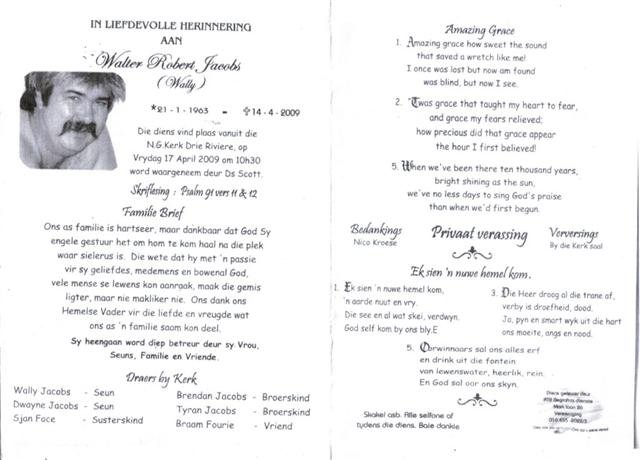 IN LIEFDEVOLLE HERINNERING
AAN
Walter Robert Jacobs
(Wally)
*21 - 1 - 1963 - ✝14 - 4 - 2009
Die diens vind plaas vanuit die
N.G.Kerk Drie Riviere, op
Vrydag 17 April 2009 om 10h30
word waargeneem deur Ds Scott.
Skriflesing : Psalm 91 vers 11 & 12
Familie Brief
Ons as familie is hartseer, maar dankbaar dat God Sy
engele gestuur het om hom te kom haal na die plek
waar sielerus is. Die wete dat hy met 'n passie
vir sy geliefdes, medemens en bowenal God,
vele mense se lewens kon aanraak, maak die gemis
ligter, maar nie makliker nie. Ons dank ons
Hemelse Vader vir die liefde en vreugde wat
ons as 'n familie saam kon deel.
Sy heengaan word diep betreur deur sy Vrou,
Seuns, Familie en Vriende.
Draers by Kerk
Wally Jacobs - Seun
Dwayne Jacobs - Seun
Sjan Face - Susterskind
Brendan Jacobs - Broerskind
Tyran Jacobs - Broerskind
Braam Fourie - Vriend
Amazing Grace
1. Amazing grace how sweet the sound
that saved a wretch like me!
I once was lost but now am found
was blind, but now I see.
2. 'Twas grace that taught my heart to fear,
and grace my fears relieved;
how precious did that grace appear
the hour I first believed!
5. When we've been there ten thousand years,
bright shining as the sun,
we've no less days to sing God's praise
than when we'd first begun.
Bedankings
Nico Kroese
Privaat verassing
Verversings
By die Kerk saal
Ek sien 'n nuwe hemel kom.
1. Ek sien 'n nuwe hemel kom,
'n aarde nuut en vry.
Die see en al wat skei, verdwyn.
God self kom by ons bly.E
3. Die Heer droog al die trane af,
verby is droefheid, dood.
Ja, pyn en smart wyk uit die hart
ons moeite, angs en nood.
5. Oorwinnaars sal ons alles erf
en drink uit die fontein
van lewenswater, heerlik, rein.
En God sal oor ons skyn.
Skakel asb. Alle selfone af
tydens die diens. Baie dankie
Diens gelewer deur
Begrafnis dienste
Vereeniging